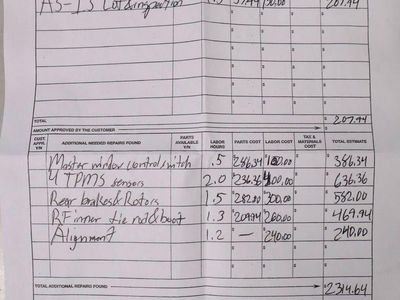 AS-IS 207.94
TOTAL $ 207.94
AMOUNT APPROVED BY THE CUSTOMER $
CUST. APPR. Y/N ADDITIONAL NEEDED REPAIRS FOUND PARTS AVAILABLE Y/N LABOR HOURS PARTS COST LABOR COST TAX & MATERIALS COST TOTAL ESTIMATE
Master window control switch .5 $ 286.34 $ 100.00 $ $ 386.34
4 TPMS sensors 2.0 $ 236.36 $ 400.00 $ $ 636.36
Rear brakes & Rotors 1.5 $ 282.00 $ 300.00 $ $ 582.00
RF inner tie rod & boot 1.3 $ 209.94 $ 260.00 $ $ 469.94
Alignment 1.2 $ — $ 240.00 $ $ 240.00
TOTAL ADDITIONAL REPAIRS FOUND $ 2314.64